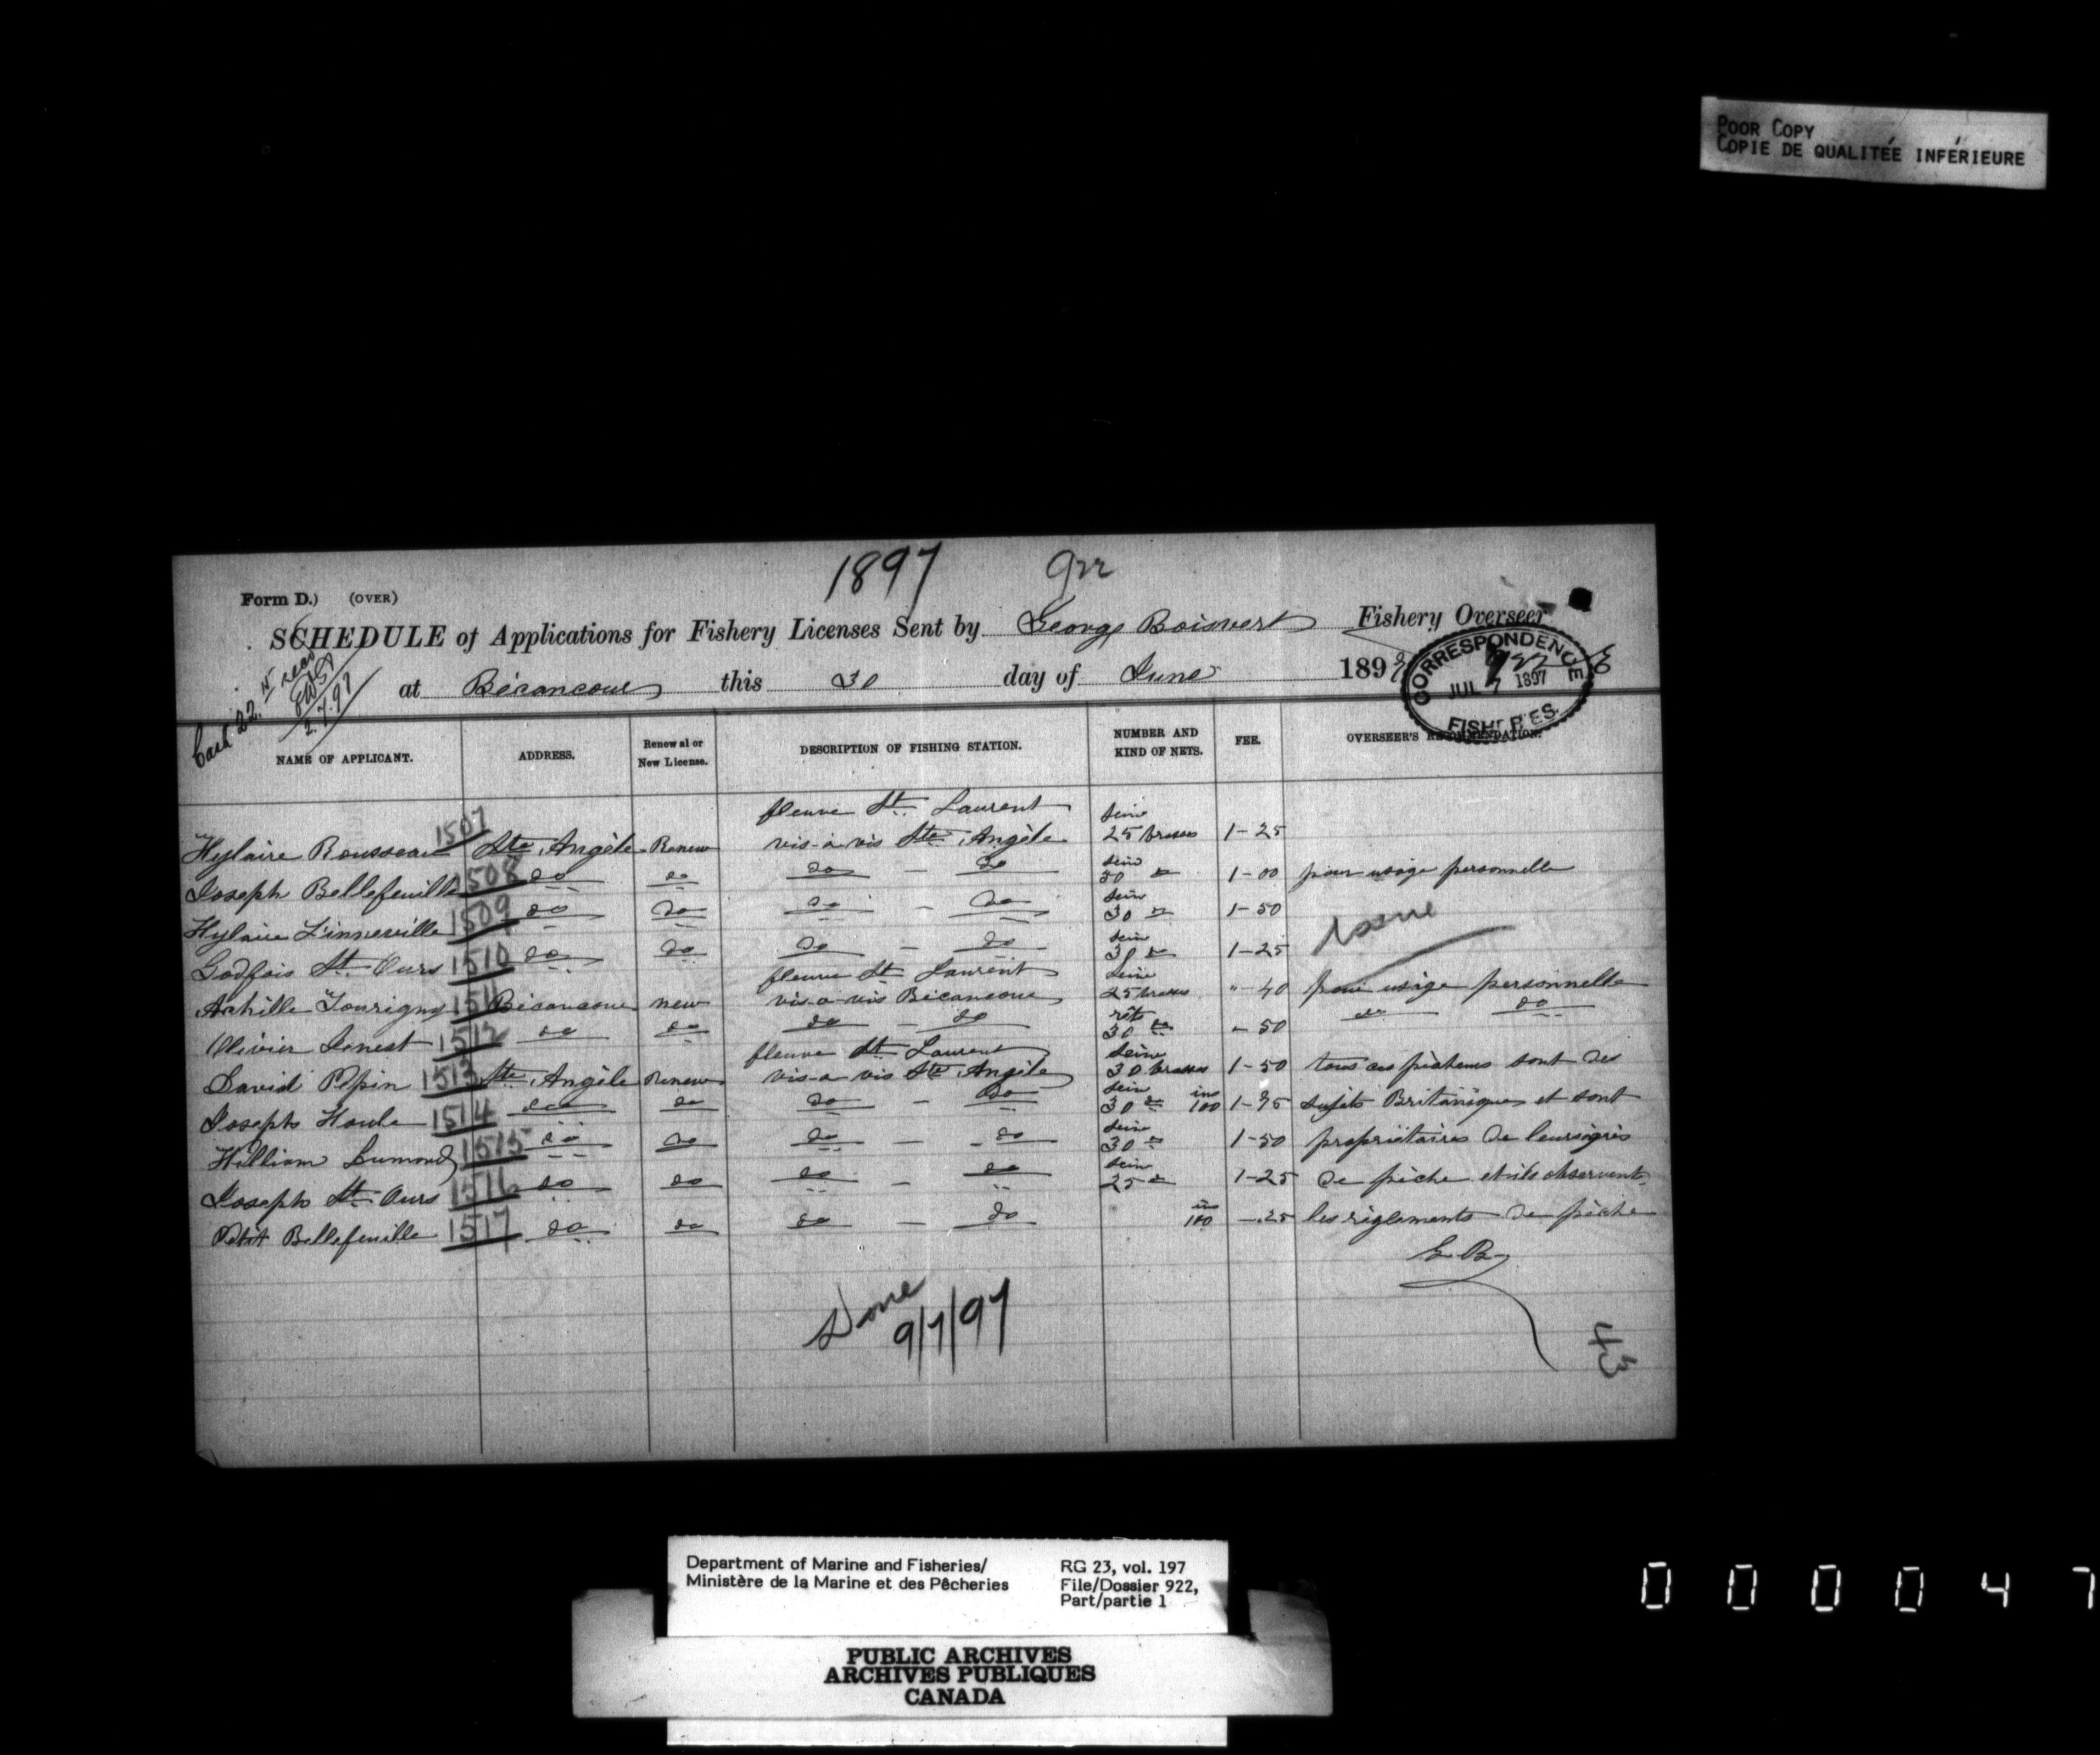 POOR COPY
COPIE DE QUALITÉE INFÉRIEURE
1897 922
Form D.) (OVER)
SCHEDULE of Applications for Fishery Licenses Sent by George Boisvert Fishery Overseer
at Bécancour this 30 day of June 1897
CORRESPONDENCE
922
JUL 7 1897
FISHERIES.
2.7.97
NAME OF APPLICANT. ADDRESS. Renewal or New License. DESCRIPTION OF FISHING STATION. NUMBER AND KIND OF NETS. FEE. OVERSEER'S RECOMMENDATION.
fleuve St. Laurent seine
Hylaire Rousseau 1507 Ste. Angèle Renew vis-a vis Ste. Angèle 25 brasses 1-25
Joseph Bellefeuille 1508 do do do - do sein 30 do 1-00 pour usage personnelle
Hylaire L'inneville 1509 do do do - do sein 30 do 1-50
Issue
Godfois St. Ours 1510 do do do - do sein 30 do 1-25
fleuve St. Laurent seine
Achille Tourigny 1511 Bécancour new vis-a-vis Bécancour 25 brasses "-40 pour usage personnelle
Olivier 1512 do do do - do rêts 30 do - 50 do do
fleuve St. Laurent seine
David Pepin 1513 Ste. Angèle Renew vis-a vis Ste Angèle 30 brasses 1-50 tous ces pêcheurs sont des
Joseph Houle 1514 do do do - do sein 30 do ins 100 1-75 sujets Britaniques et sont
William Dumond 1515 do do do - do seine 30 do 1-50 propriètaires de leurs agrès
Joseph St. Ours 1516 do do do - do sein 25 do 1-25 de pêche et ils observent
Petit Bellefeuille 1517 do do do - do ins 100 -.25 les règlements de pêche
G. B.
Done
9/7/97
43
Department of Marine and Fisheries/
Ministère de la Marine et des Pêcheries
RG 23, vol. 197
File/Dossier 922,
Part/partie 1
PUBLIC ARCHIVES
ARCHIVES PUBLIQUES
CANADA
0 0 0 0 4 7